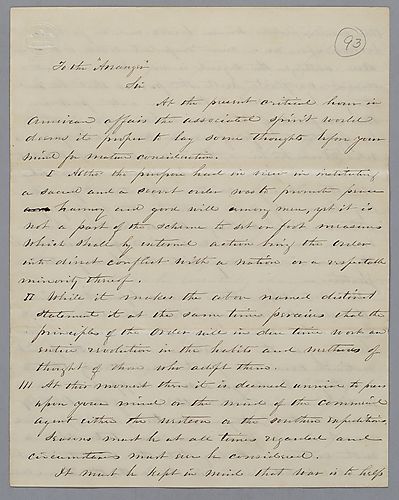 93
To the "Arranger"
Sir
At the present critical hour in
American affairs the associated spirit world
deems it proper to lay some thoughts upon your
mind for mature consideration.
I the purpose had in view in instituting
a sacred and a secret order was to promote peace
harmony and good will among men, yet it is
not a part of the scheme to set on foot measures
which shall by external action bring the Order
into direct conflict with a nation or a respectable
minority thereof.
II While it makes the above named distinct
statement it at the same time perceives that the
principles of the Order will in due time work an
entire revolution in the habits and methods of
thought of those who adopt them.
III At this moment then it is deemed unwise to press
upon your mind or the mind of the commercial
agent either the western or the southern expeditions
Seasons must be at all times regarded and
circumstances must ever be considered.
It must be kept in mind that war is to help